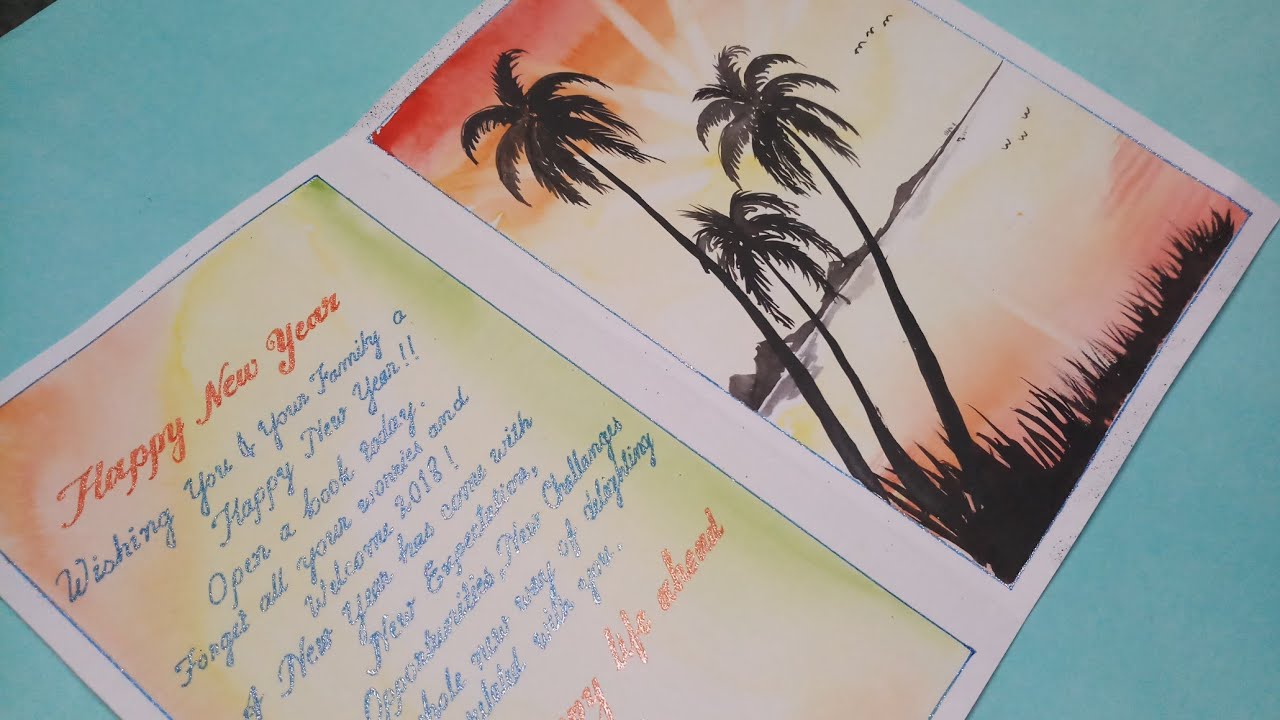 Happy New Year
Wishing You & Your Family a
Happy New Year!!
Open a book today.
Forget all your worries and
Welcome 2018!
New Year has come with
New Expectation,
Opportunities, New Challanges
new way of delayhting
with you.
life ahead